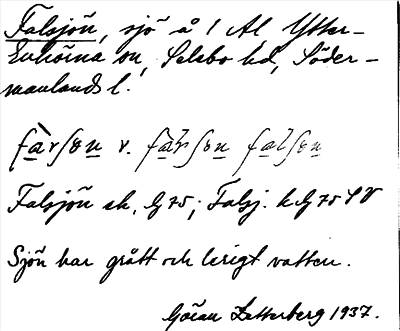 Falsjön, sjö å 1 Al Ytter-
Enhörna sn, Selebo hd, Söder-
manlands l.
Falsjön ek. G 75; Falsj. k G 75 SV
Sjön har grått och lerigt vatten.
Göran Zetterberg 1937.